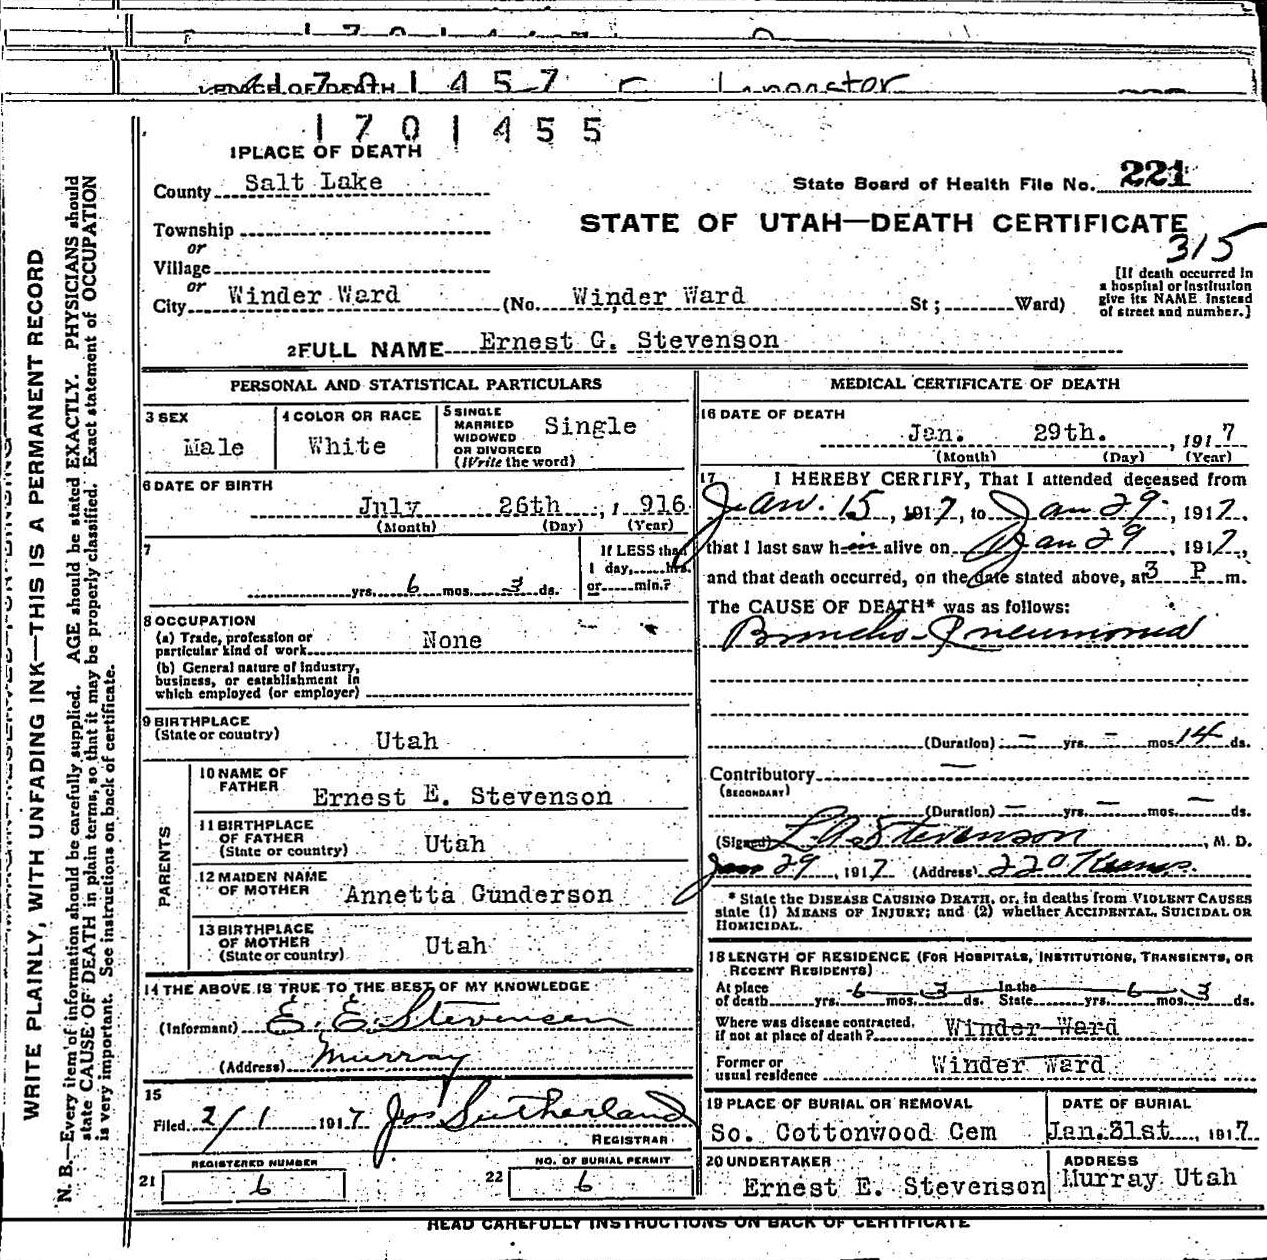 1701457
PLACE OF DEATH
1701455
1 PLACE OF DEATH
County Salt Lake
State Board of Health File No. 221
Township
or
STATE OF UTAH—DEATH CERTIFICATE
315
Village
or
City Winder Ward (No. Winder Ward St ; Ward)
[If death occurred in
a hospital or institution
give its NAME instead
of street and number.]
2 FULL NAME Ernest G. Stevenson
PERSONAL AND STATISTICAL PARTICULARS
3 SEX
Male
4 COLOR OR RACE
White
5 SINGLE
MARRIED
WIDOWED
OR DIVORCED
(Write the word)
Single
6 DATE OF BIRTH
July 26th , 1 916
(Month) (Day) (Year)
7
yrs. 6 mos. 3 ds.
If LESS than
1 day, hrs.
or min.?
8 OCCUPATION
(a) Trade, profession or
particular kind of work None
(b) General nature of industry,
business, or establishment in
which employed (or employer)
9 BIRTHPLACE
(State or country)
Utah
PARENTS
10 NAME OF
FATHER
Ernest E. Stevenson
11 BIRTHPLACE
OF FATHER
(State or country)
Utah
12 MAIDEN NAME
OF MOTHER
Annetta Gunderson
13 BIRTHPLACE
OF MOTHER
(State or country)
Utah
14 THE ABOVE IS TRUE TO THE BEST OF MY KNOWLEDGE
(Informant) E. E. Stevenson
(Address) Murray
15
Filed 2/1 1917 Jos Sutherland
REGISTRAR
REGISTERED NUMBER
21 6
NO. OF BURIAL PERMIT
22 6
MEDICAL CERTIFICATE OF DEATH
16 DATE OF DEATH
Jan. 29th. , 191 7
(Month) (Day) (Year)
17 I HEREBY CERTIFY, That I attended deceased from
Jan. 15, 1917, to Jan 29, 1917,
that I last saw him alive on Jan 29, 1917,
and that death occurred, on the date stated above, at 3 P m.
The CAUSE OF DEATH* was as follows:
Broncho-Pneumonia
(Duration) – yrs. – mos. 14 ds.
Contributory —
(SECONDARY)
(Duration) – yrs. – mos. – ds.
(Signed) L A Stevenson, M. D.
Jan 29, 1917 (Address) 220
* State the DISEASE CAUSING DEATH, or, in deaths from VIOLENT CAUSES
state (1) MEANS OF INJURY; and (2) whether ACCIDENTAL, SUICIDAL OR
HOMICIDAL.
18 LENGTH OF RESIDENCE (FOR HOSPITALS, INSTITUTIONS, TRANSIENTS, OR
RECENT RESIDENTS)
At place In the
of death yrs. 6 mos. 3 ds. State yrs. 6 mos. 3 ds.
Where was disease contracted,
if not at place of death? Winder Ward
Former or
usual residence Winder Ward
19 PLACE OF BURIAL OR REMOVAL
So. Cottonwood Cem
DATE OF BURIAL
Jan. 31st , 1917.
20 UNDERTAKER
Ernest E. Stevenson
ADDRESS
Murray Utah
READ CAREFULLY INSTRUCTIONS ON BACK OF CERTIFICATE
WRITE PLAINLY, WITH UNFADING INK—THIS IS A PERMANENT RECORD
N. B.—Every item of information should be carefully supplied. AGE should be stated EXACTLY. PHYSICIANS should
state CAUSE OF DEATH in plain terms, so that it may be properly classified. Exact statement of OCCUPATION
is very important. See instructions on back of certificate.